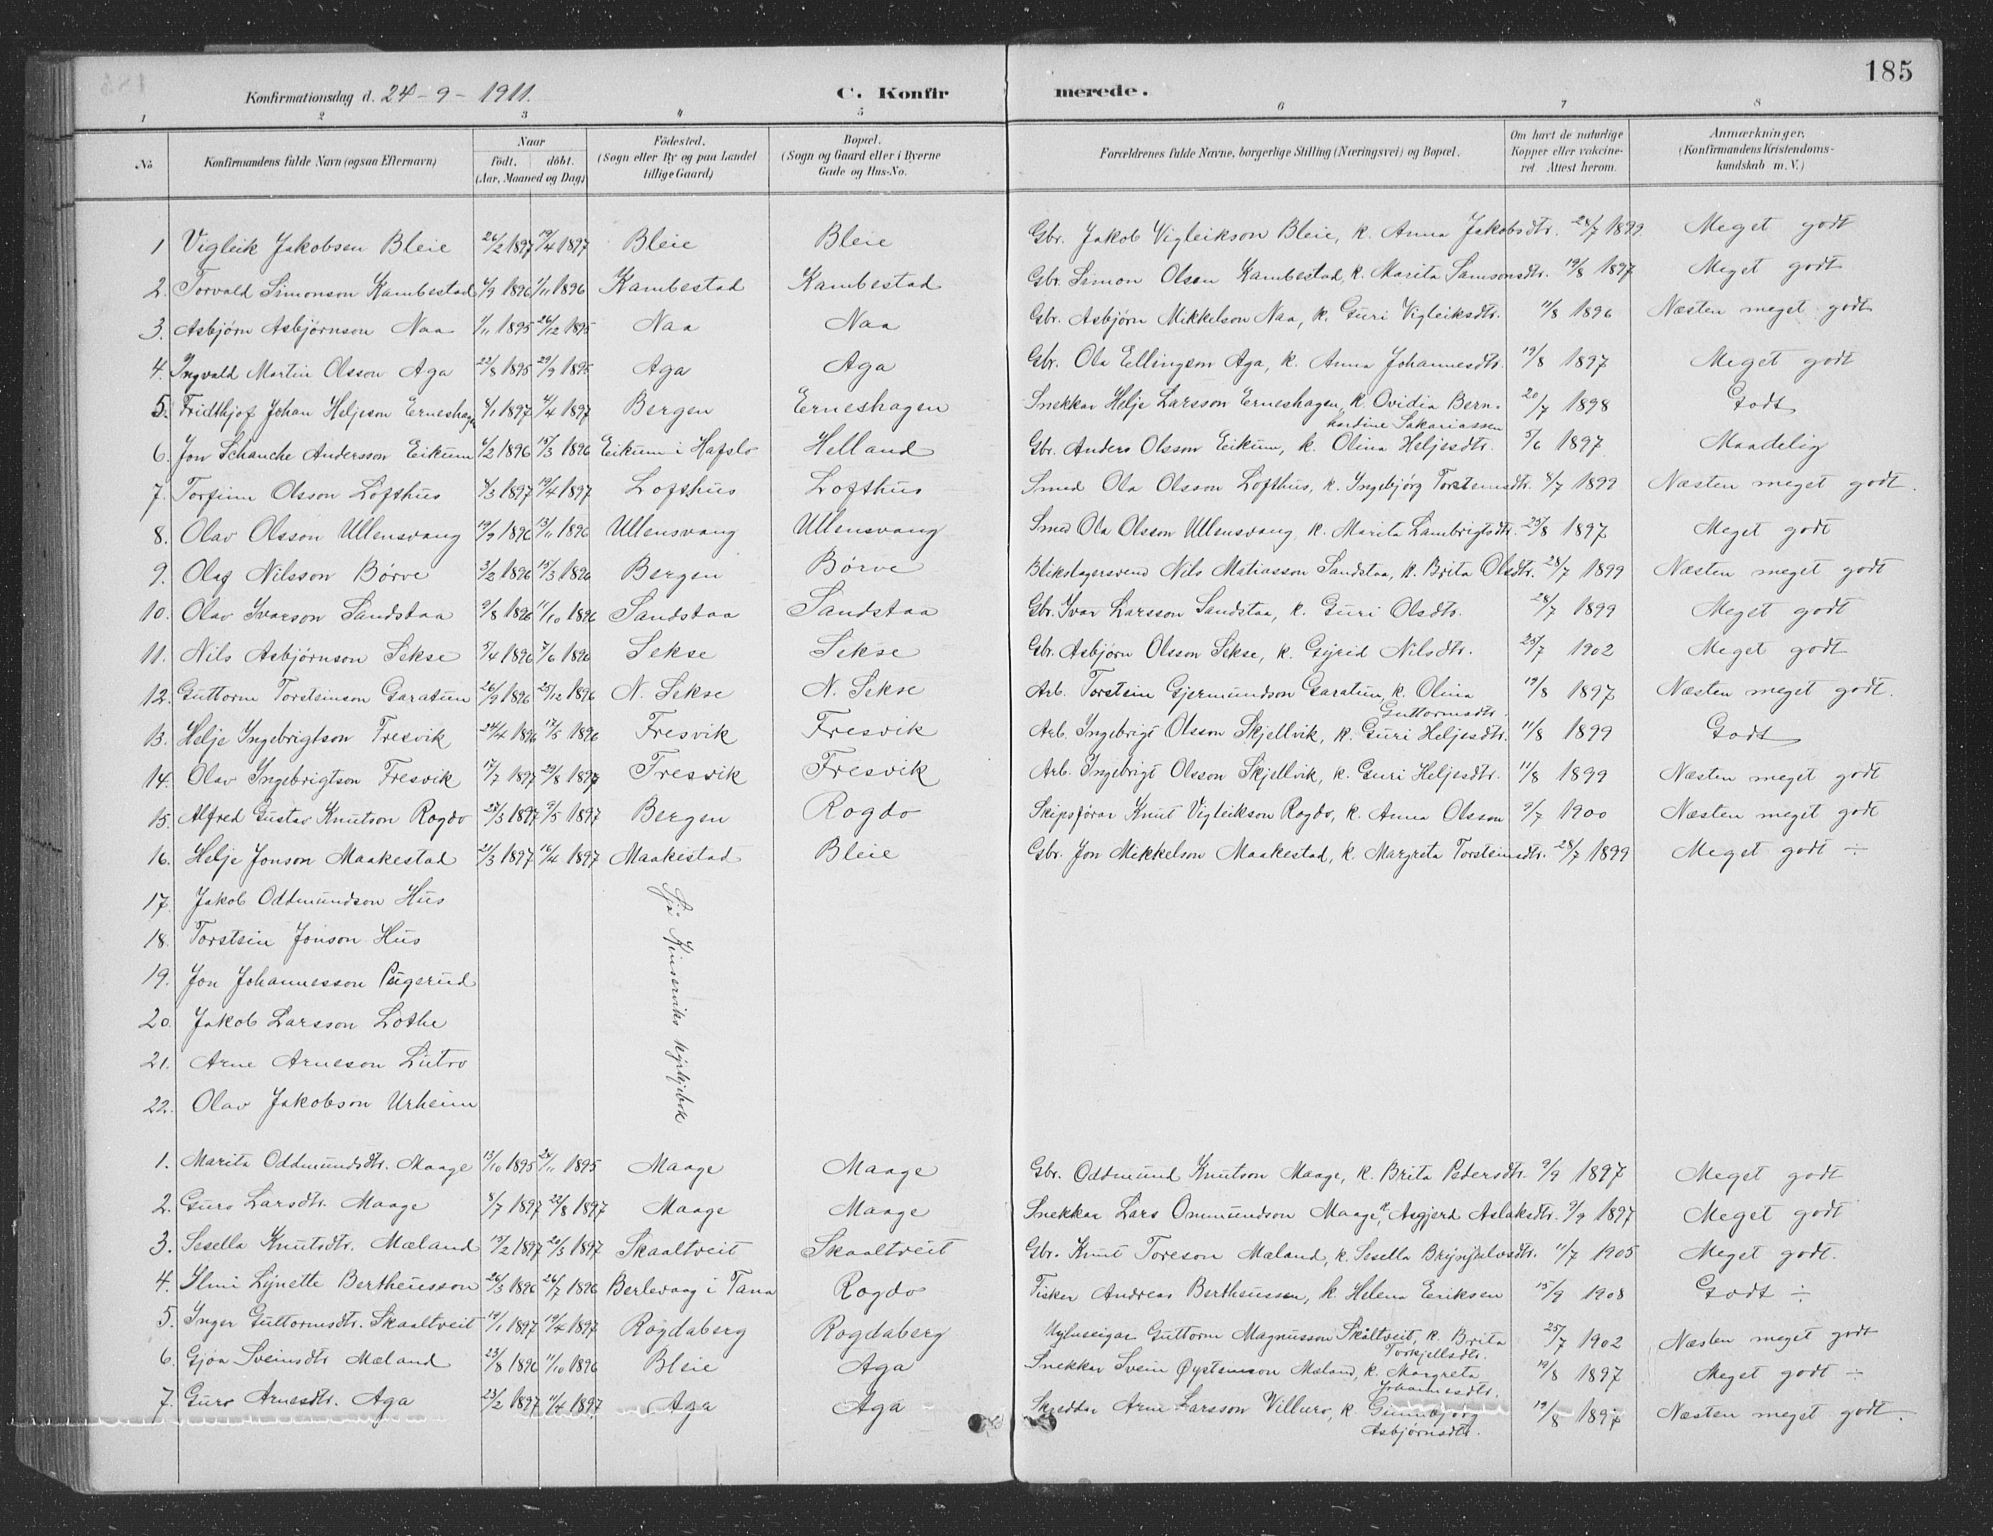 185
Konfirmationsdag d. 24-9-1911. C. Konfirmerede.
1 2 3 4 5 6 7 8
No. Konfirmandens fulde Navn (ogsaa Efternavn) Naar født, døbt. (Aar, Maaned og Dag) Fødested. (Sogn eller By og paa Landet tillige Gaard) Bopæl. (Sogn og Gaard eller i Byerne Gade og Hus-No. Forældrenes fulde Navne, borgerlige Stilling (Næringsvei) og Bopæl. Om havt de naturlige Kopper eller vakcineret. Attest herom. Anmærkninger, (Konfirmandens Kristendomskundskab m. V.)
1 Vigleik Jakobsen Bleie 26/2 1897 19/4 1897 Bleie Bleie Gbr. Jakob Vigleikson Bleie, k. Anna Jakobsdtr. 28/7 1899 Meget godt
2. Torvald Simonson Kambestad 4/9 1896 1/11 1896 Kambestad Kambestad Gbr. Simon Olsen Kambestad, k. Marita Samsonsdtr. 19/8 1897 Meget godt
3. Asbjørn Asbjørnson Naa 1/11 1895 26/12 1895 Naa Naa Gbr. Asbjørn Mikkelson Naa, k. Guri Vigleiksdtr. 11/8 1896 Næsten meget godt
4. Ingvald Martin Olsson Aga 22/8 1895 29/9 1895 Aga Aga Gbr. Ola Ellingson Aga, k. Anna Johannesdtr. 19/8 1897 Meget godt
5. Fridthjof Johan Heljeson Erneshagen 8/1 1897 4/4 1897 Bergen Erneshagen Snekkar Helje Larsson Erneshagen, k. Ovidia Bernhardine Sakariassen 20/7 1898 Godt
6. Jon Schanche Andersson Eikum 4/2 1896 15/3 1896 Eikum i Hafslo Helland Gbr. Anders Olsson Eikum, k. Olina Heljesdtr. 5/6 1897 Maadelig
7. Torfinn Olsson Lofthus 4/3 1897 19/4 1897 Lofthus Lofthus Smed Ola Olsson Lofthus, k. Ingebjørg Torsteinsdtr. 8/7 1899 Næsten meget godt.
8. Olav Olsson Ullensvang 19/9 1896 15/11 1896 Ullensvang Ullensvang Smed Ola Olsson Ullensvang, k. Marita Lambrigtsdtr. 25/8 1897 Meget godt
9. Olaf Nilsson Børve 3/2 1896 15/3 1896 Bergen Børve Blikslagersvend Nils Matiasson Sandstaa, k. Brita Olsdtr. 28/7 1899 Næsten meget godt
10. Olav Ivarson Sandstaa 9/8 1896 11/10 1896 Sandstaa Sandstaa Gbr. Ivar Larsson Sandstaa, k. Guri Olsdtr. 28/7 1899 Meget godt
11. Nils Asbjørnson Sekse 5/4 1896 7/6 1896 Sekse Sekse Gbr. Asbjørn Olsson Sekse, k. Gyrid Nilsdtr. 25/7 1902 Meget godt
12. Guttorm Torsteinson Garatun 26/9 1896 25/12 1896 N. Sekse N. Sekse Arb. Torstein Gjermundson Garatun, k. Olina Guttormsdtr. 19/8 1897 Næsten meget godt.
13. Helje Ingebrigtson Fresvik 24/4 1896 17/5 1896 Fresvik Fresvik Arb. Ingebrigt Olsson Skjellvik, k. Guri Heljesdtr. 11/8 1899 Godt
14. Olav Ingebrigtson Fresvik 17/7 1897 29/8 1897 Fresvik Fresvik Arb. Ingebrigt Olsson Skjellvik, k. Guri Heljesdtr. 11/8 1899 Næsten meget godt
15. Alfred Gustav Knutson Rogdo 28/3 1897 9/5 1897 Bergen Rogdo Skipsförar Knut Vigleikson Rogdo, k. Anna Olsson 9/7 1900 Næsten meget godt
16. Helje Jonson Maakestad 21/3 1897 16/4 1897 Maakestad Bleie Gbr. Jon Mikkelson Maakestad, k. Margreta Torsteinsdtr. 28/7 1899 Meget godt ÷
17. Jakob Oddmundson Hus
18. Torstein Jonson Hus
19. Jon Johannesson Peigerud
20. Jakob Larsson Lothe
21. Arne Arneson Lutro
22. Olav Jakobson Urheim
Sjå Kinserviks kyrkjebok
1. Marita Oddmundsdtr. Maage 13/10 1895 24/11 1895 Maage Maage Gbr. Oddmund Knutson Maage, k. Brita Pedersdtr. 9/9 1897 Meget godt
2. Guro Larsdtr. Maage 8/7 1897 22/8 1897 Maage Maage Snekkar Lars Ommundson Maage, k. Asgjerd Aslaksdtr. 9/9 1897 Meget godt
3. Sesella Knutsdtr. Mæland 19/2 1897 28/3 1897 Skaaltveit Skaaltveit Gbr. Knut Toreson Mæland, k. Sesella Brynjulvsdtr. 11/7 1905 Meget godt.
4. Ilmi Lynette Bertheusson 26/3 1896 26/7 1896 Berlevaag i Tana Rogdo Fisker Andreas Bertheussen, k. Helena Eriksen 15/9 1908 Godt ÷
5. Inger Guttormsdtr. Skaaltveit 19/1 1897 19/4 1897 Rogdaberg Rogdaberg Myluseigar Guttorm Magnusson Skåltveit, k. Brita Torkjellsdtr. 25/7 1902 Næsten meget godt
6. Gjøa Sveinsdtr. Mæland 23/8 1896 11/10 1896 Bleie Aga Snekkar Svein Øysteinson Mæland, k. Margreta Johannesdtr. 19/8 1897 Meget godt ÷
7. Guro Arnesdtr. Aga 23/2 1897 11/4 1897 Aga Aga Skreddar Arne Larsson Villuro, k. Gunnbjørg Asbjørnsdtr. 19/8 1897 Næsten meget godt.